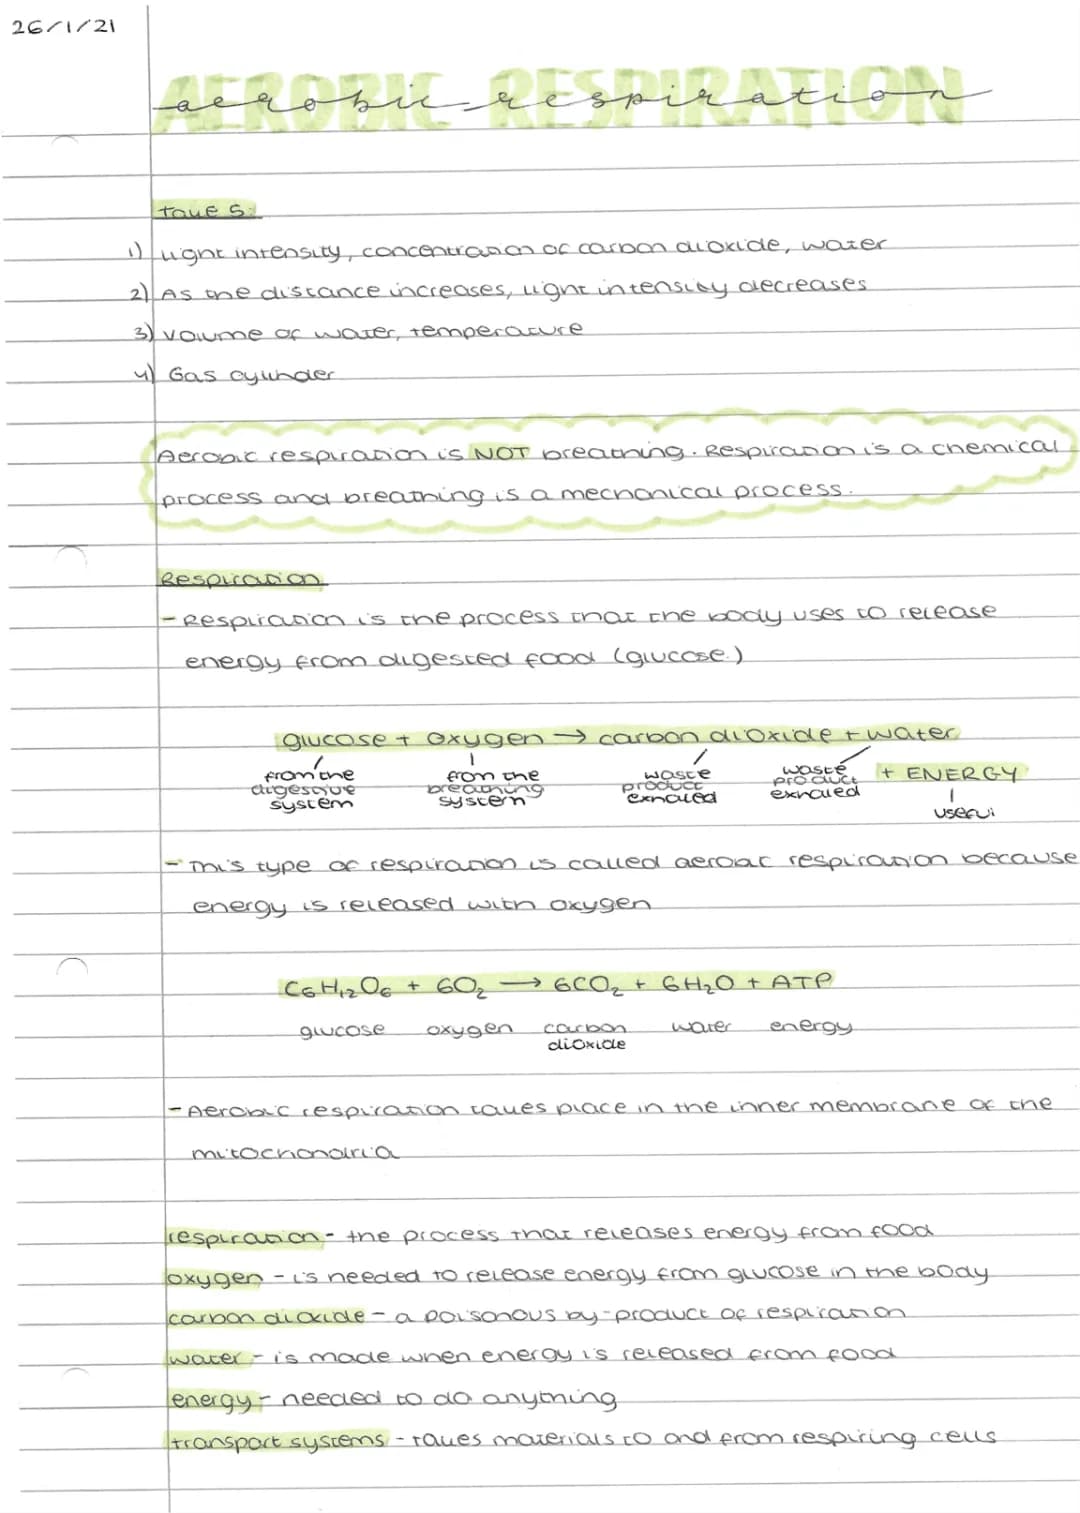 26/1/21
AEROBIC RESPIRATION
aerobic respiration
Take 5:
1) light intensity, concentration of carbon dioxide, water
2) As the distance increases, light intensity decreases
3) volume of water, temperature
4) Gas cylinder
Aerobic respiration is NOT breathing. Respiration is a chemical
process and breathing is a mechanical process.
Respiration
- Respiration is the process that the body uses to release
energy from digested food (glucose)
glucose + oxygen → carbon dioxide + water
+ ENERGY
from the digestive system
from the breathing system
waste product exhaled
waste product exhaled
useful
- This type of respiration is called aerobic respiration because
energy is released with oxygen
C6H12O6 + 6O2 → 6CO2 + 6H2O + ATP
glucose oxygen carbon dioxide water energy
- Aerobic respiration takes place in the inner membrane of the
mitochondria
respiration - the process that releases energy from food
oxygen - is needed to release energy from glucose in the body
carbon dioxide - a poisonous by-product of respiration
water - is made when energy is released from food
energy - needed to do anything
transport systems - takes materials to and from respiring cells